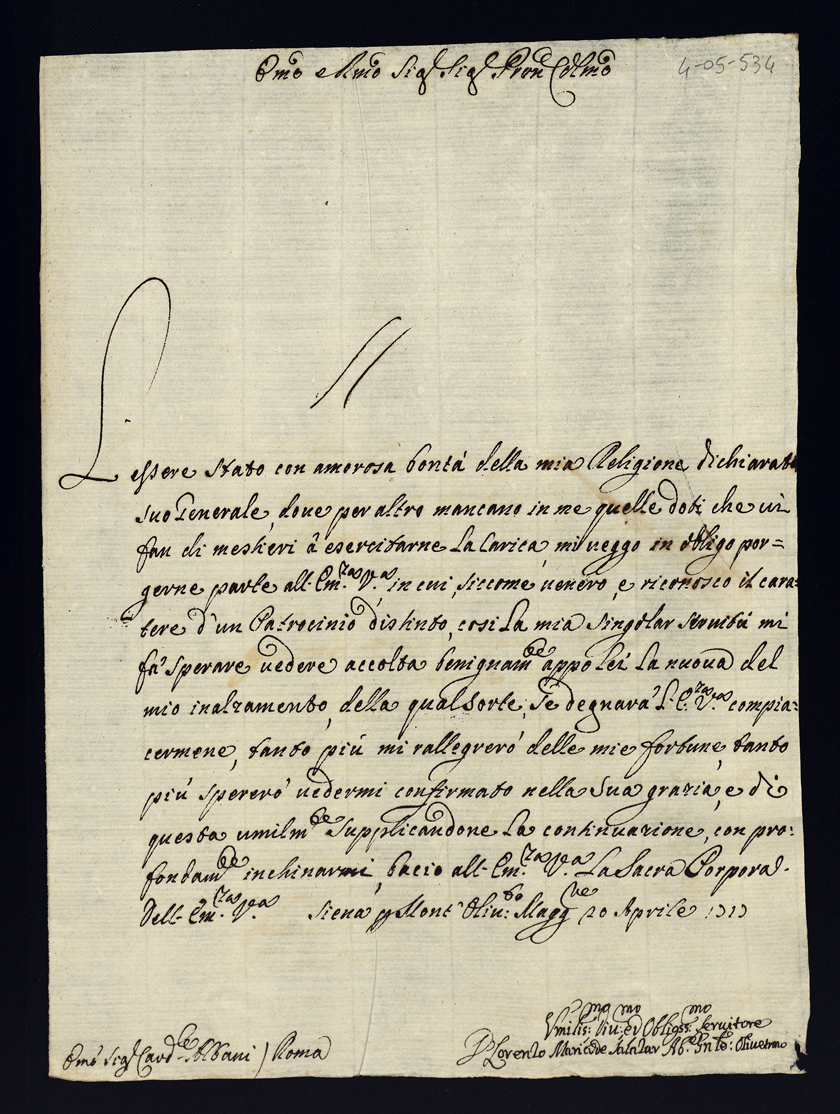 Emo e Rmo Sigr Sigr Pron Colmo
4-05-534
L'essere stato con amorosa bontá della mia Religione dichiarato
suo Generale, dove per altro mancano in me quelle doti che vi
fan di mestieri â esercitarne la Carica, mi veggo in obligo por=
gerne parte all' Em.za V.a, in cui, siccome venero, e riconosco il cara=
tere d'un Patrocinio distinto, cosi la mia singolar servitú mi
fá sperare vedere accolta benignamte appo lei la nuova del
mio inalzamento, della qual sorte, se degnará l' E.za V.a compia=
cermene, tanto piú mi rallegreró delle mie fortune, tanto
piú spereró vedermi confirmato nella sua grazia, e di
questa umilmte supplicandone la continuazione, con pro:
fondamte inchinarmi, bacio all' Em.za V.a la Sacra Porpora.
Dell' Em.za V.a Siena p Mont' Oliu:to Maggre 20 Aprile
Vmilis:mo Diu:mo ed Obligss:mo Servitore
D Lorenzo Maria de Salazar Ab.e Gnle: Olivetano
Emo Sigr Card.le Albani / Roma